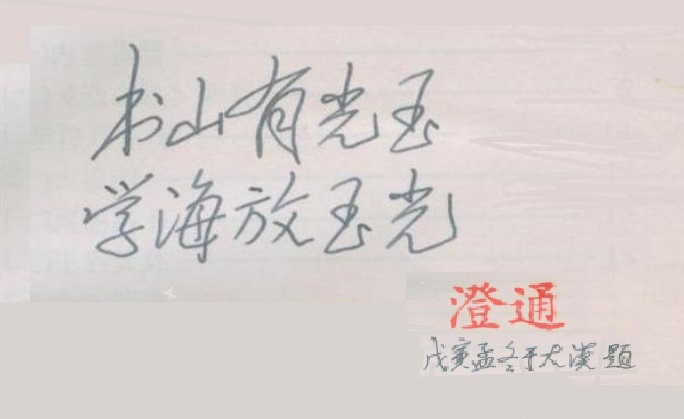 书山有光玉
学海放玉光
澄通
戊寅孟冬于大漠题